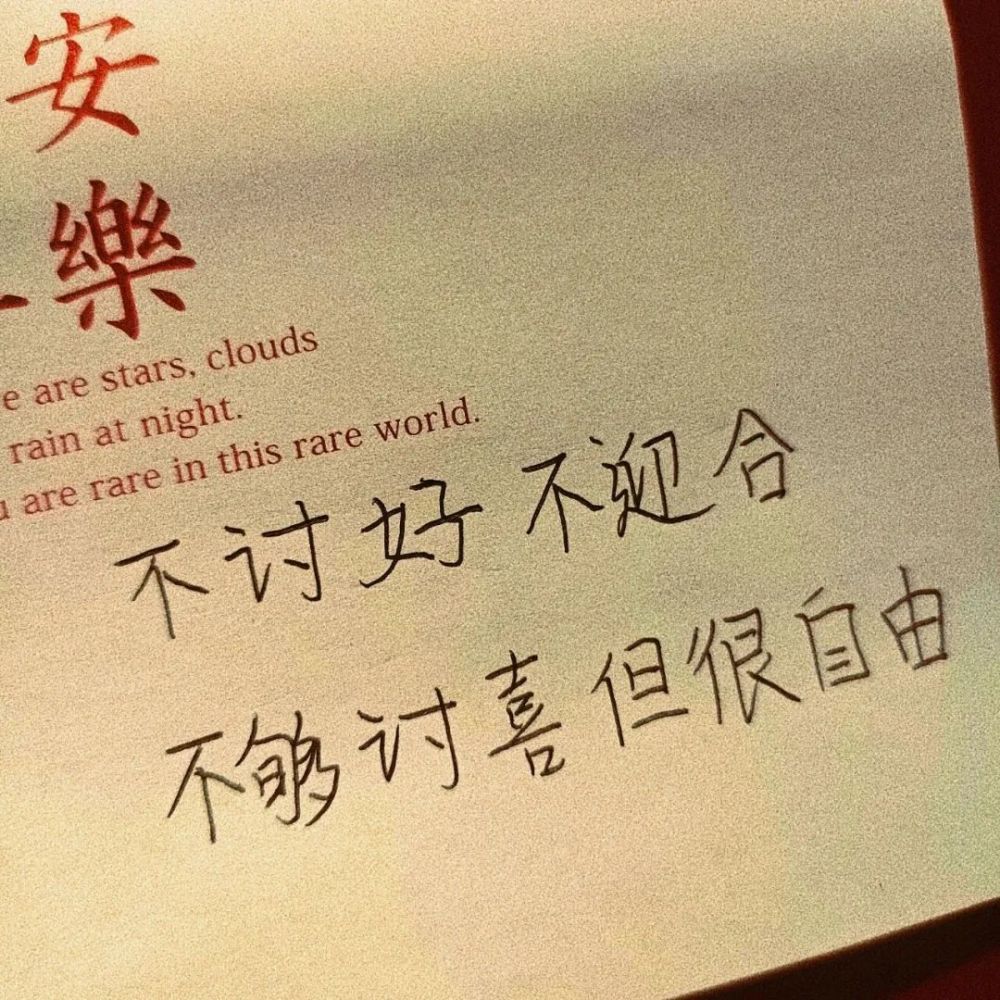 安
樂
e are stars, clouds
rain at night.
are rare in this rare world.
不讨好 不迎合
不够讨喜但很自由